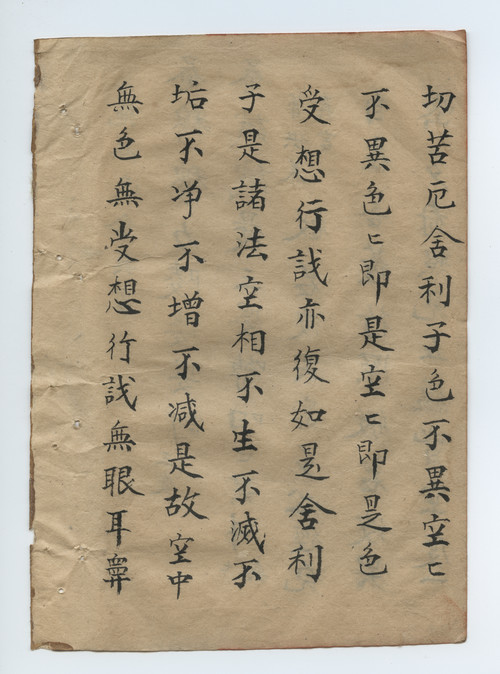 切苦厄舍利子色不異空〻
不異色〻即是空〻即是色
受想行識亦復如是舍利
子是諸法空相不生不滅不
垢不淨不增不减是故空中
無色無受想行識無眼耳鼻